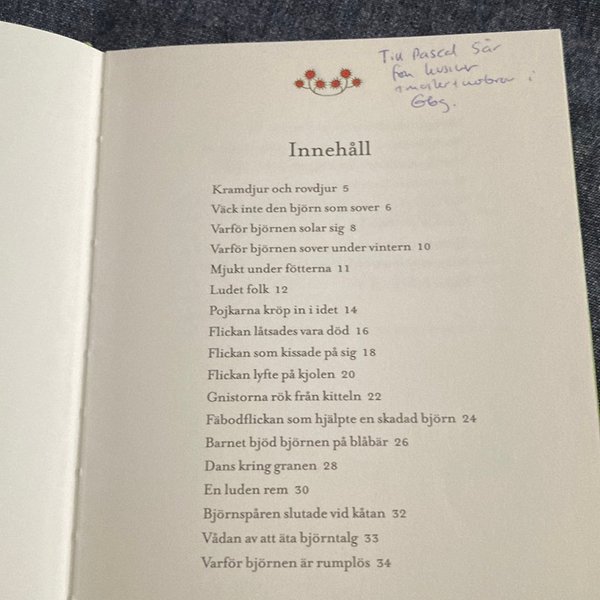 Till Pascal 5år
från kusiner
i Gbg.
Innehåll
Kramdjur och rovdjur 5
Väck inte den björn som sover 6
Varför björnen solar sig 8
Varför björnen sover under vintern 10
Mjukt under fötterna 11
Ludet folk 12
Pojkarna kröp in i idet 14
Flickan låtsades vara död 16
Flickan som kissade på sig 18
Flickan lyfte på kjolen 20
Gnistorna rök från kitteln 22
Fäbodflickan som hjälpte en skadad björn 24
Barnet bjöd björnen på blåbär 26
Dans kring granen 28
En luden rem 30
Björnspåren slutade vid kåtan 32
Vådan av att äta björntalg 33
Varför björnen är rumplös 34